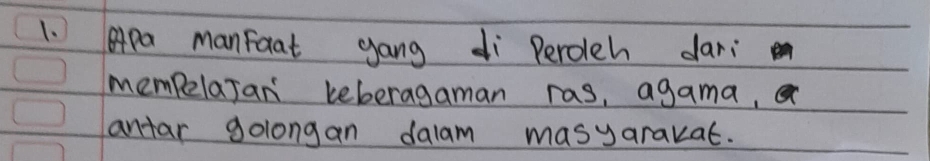 1. Apa manfaat yang di peroleh dari
mempelajari keberagaman ras, agama,
antar golongan dalam masyarakat.